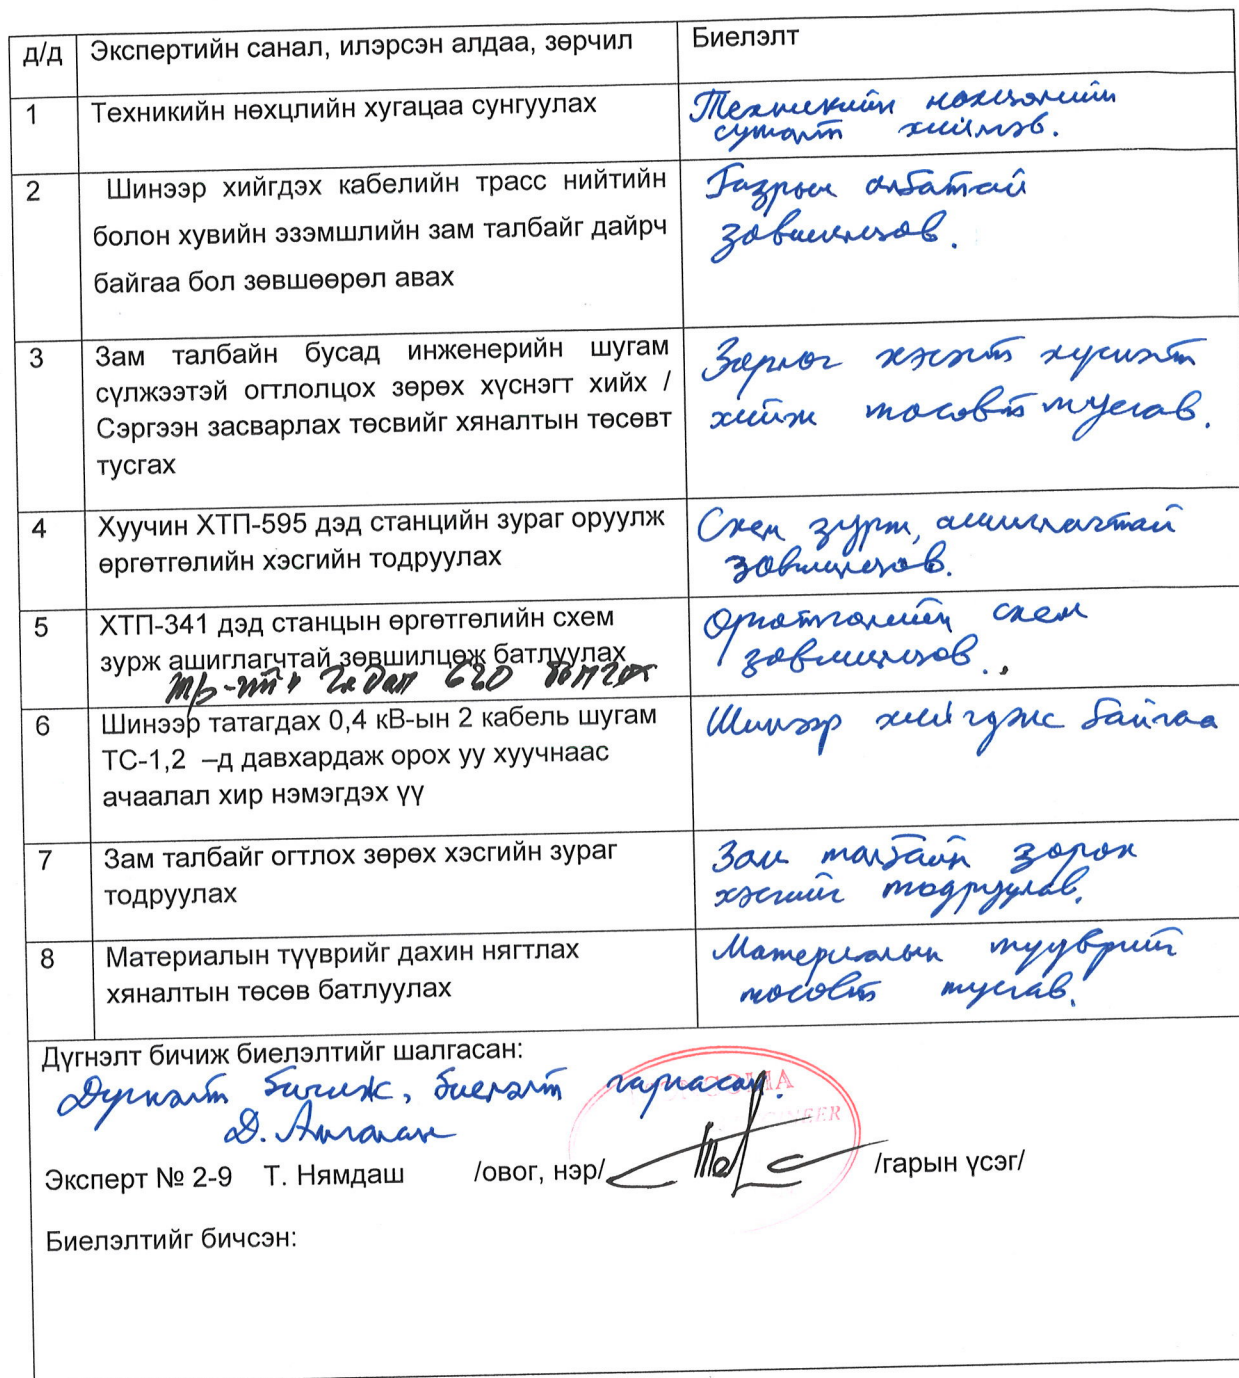 д/д Экспертийн санал, илэрсэн алдаа, зөрчил Биелэлт
1 Техникийн нөхцлийн хугацаа сунгуулах
Техникийн нөхцөлийн
сунгалт хийлгэв.
2 Шинээр хийгдэх кабелийн трасс нийтийн
болон хувийн эзэмшлийн зам талбайг дайрч
байгаа бол зөвшөөрөл авах
Газрын албатай
зөвшилцөв.
3 Зам талбайн бусад инженерийн шугам
сүлжээтэй огтлолцох зөрөх хүснэгт хийх /
Сэргээн засварлах төсвийг хяналтын төсөвт
тусгах
Зөрлөг хэсэгт хүснэгт
хийж төсөвт тусгав.
4 Хуучин ХТП-595 дэд станцийн зураг оруулж
өргөтгөлийн хэсгийн тодруулах
Схем зурж, ашиглагчтай
зөвшилцөв.
5 ХТП-341 дэд станцын өргөтгөлийн схем
зурж ашиглагчтай зөвшилцөж батлуулах
630 болгох
Өргөтгөлийн схем
зөвшилцөв.
6 Шинээр татагдах 0,4 кВ-ын 2 кабель шугам
ТС-1,2 –д давхардаж орох уу хуучнаас
ачаалал хир нэмэгдэх үү
Шинээр хийгдэж байгаа
7 Зам талбайг огтлох зөрөх хэсгийн зураг
тодруулах
Зам талбайн зөрөх
хэсгийг тодруулав.
8 Материалын түүврийг дахин нягтлах
хяналтын төсөв батлуулах
Материалын түүврийг
төсөвт тусгав.
Дүгнэлт бичиж биелэлтийг шалгасан:
Дүгнэлт бичиж, биелэлт гаргасан.
Д.
Эксперт № 2-9 Т. Нямдаш /овог, нэр/ /гарын үсэг/
Биелэлтийг бичсэн: